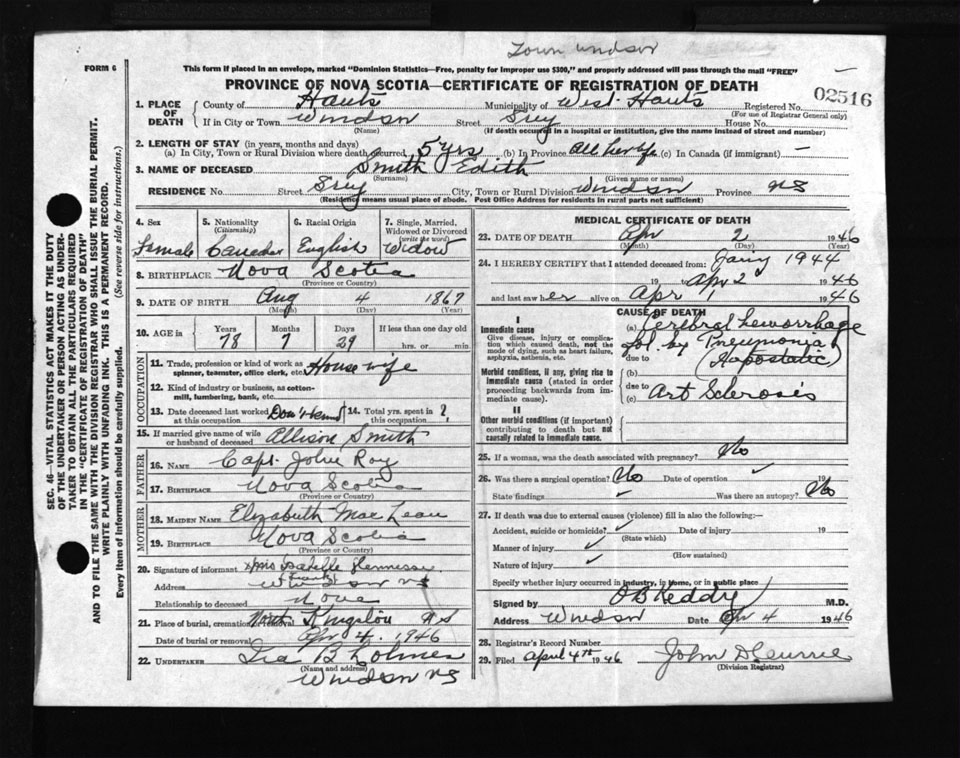 Town Windsor
FORM 6
This form if placed in an envelope, marked "Dominion Statistics—Free, penalty for improper use $300," and properly addressed will pass through the mail "FREE"
PROVINCE OF NOVA SCOTIA—CERTIFICATE OF REGISTRATION OF DEATH
02516
1. PLACE OF DEATH
County of Hants Municipality of West Hants Registered No.
(For use of Registrar General only)
If in City or Town Windsor Street Grey House No.
(Name) (If death occurred in a hospital or institution, give the name instead of street and number)
2. LENGTH OF STAY (in years, months and days)
(a) In City, Town or Rural Division where death occurred 5 yrs (b) In Province all her life (c) In Canada (if immigrant) —
3. NAME OF DECEASED Smith Edith
(Surname) (Given name or names)
RESIDENCE No. Street Grey City, Town or Rural Division Windsor Province NS
(Residence means usual place of abode. Post Office Address for residents in rural parts not sufficient)
4. Sex
Female
5. Nationality (Citizenship)
6. Racial Origin
English
7. Single, Married, Widowed or Divorced (write the word)
Widow
8. BIRTHPLACE Nova Scotia
(Province or Country)
9. DATE OF BIRTH Aug 4 1867
(Month) (Day) (Year)
10. AGE in Years Months Days If less than one day old
78 7 29 hrs. or min.
OCCUPATION
11. Trade, profession or kind of work as spinner, teamster, office clerk, etc. House wife
12. Kind of industry or business, as cotton-mill, lumbering, bank, etc.
13. Date deceased last worked at this occupation Don't know
14. Total yrs. spent in this occupation ?
15. If married give name of wife or husband of deceased Allison Smith
FATHER
16. NAME Capt. John Roy
17. BIRTHPLACE Nova Scotia
(Province or Country)
MOTHER
18. MAIDEN NAME Elizabeth Mac Lean
19. BIRTHPLACE Nova Scotia
(Province or Country)
20. Signature of informant Mrs Isabelle Hennessy
(Frank)
Address Windsor NS
Relationship to deceased None
21. Place of burial, cremation or removal North Kingston NS
Date of burial or removal Apr 4. 1946
22. UNDERTAKER Ira B Lohnes
(Name and address)
Windsor NS
MEDICAL CERTIFICATE OF DEATH
23. DATE OF DEATH Apr 2 1946
(Month) (Day) (Year)
24. I HEREBY CERTIFY that I attended deceased from: Jany 1944
19 to Apr 2 1946
and last saw her alive on Apr 1 1946
CAUSE OF DEATH
I
Immediate cause
Give disease, injury or complication which caused death, not the mode of dying, such as heart failure, asphyxia, asthenia, etc.
(a) Cerebral hemorrhage
fol. by Pneumonia
due to
Morbid conditions, if any, giving rise to immediate cause (stated in order proceeding backwards from immediate cause).
(b)
due to
(c) Art Sclerosis
II
Other morbid conditions (if important) contributing to death but not causally related to immediate cause.
25. If a woman, was the death associated with pregnancy? No
26. Was there a surgical operation? No Date of operation ✓
State findings ✓ Was there an autopsy? No
27. If death was due to external causes (violence) fill in also the following:
Accident, suicide or homicide? ✓ Date of injury 19
(State which)
Manner of injury ✓
(How sustained)
Nature of injury ✓
Specify whether injury occurred in industry, in home, or in public place
Signed by O B Keddy M.D.
Address Windsor Date Apr 4 1946
28. Registrar's Record Number
29. Filed April 4th 1946
(Division Registrar)
SEC. 46—VITAL STATISTICS ACT MAKES IT THE DUTY
OF THE UNDERTAKER OR PERSON ACTING AS UNDER-
TAKER TO OBTAIN ALL THE PARTICULARS REQUIRED
IN THE "CERTIFICATE OF REGISTRATION OF DEATH"
AND TO FILE THE SAME WITH THE DIVISION REGISTRAR WHO SHALL ISSUE THE BURIAL PERMIT.
WRITE PLAINLY WITH UNFADING INK. THIS IS A PERMANENT RECORD.
Every item of information should be carefully supplied. (See reverse side for instructions.)